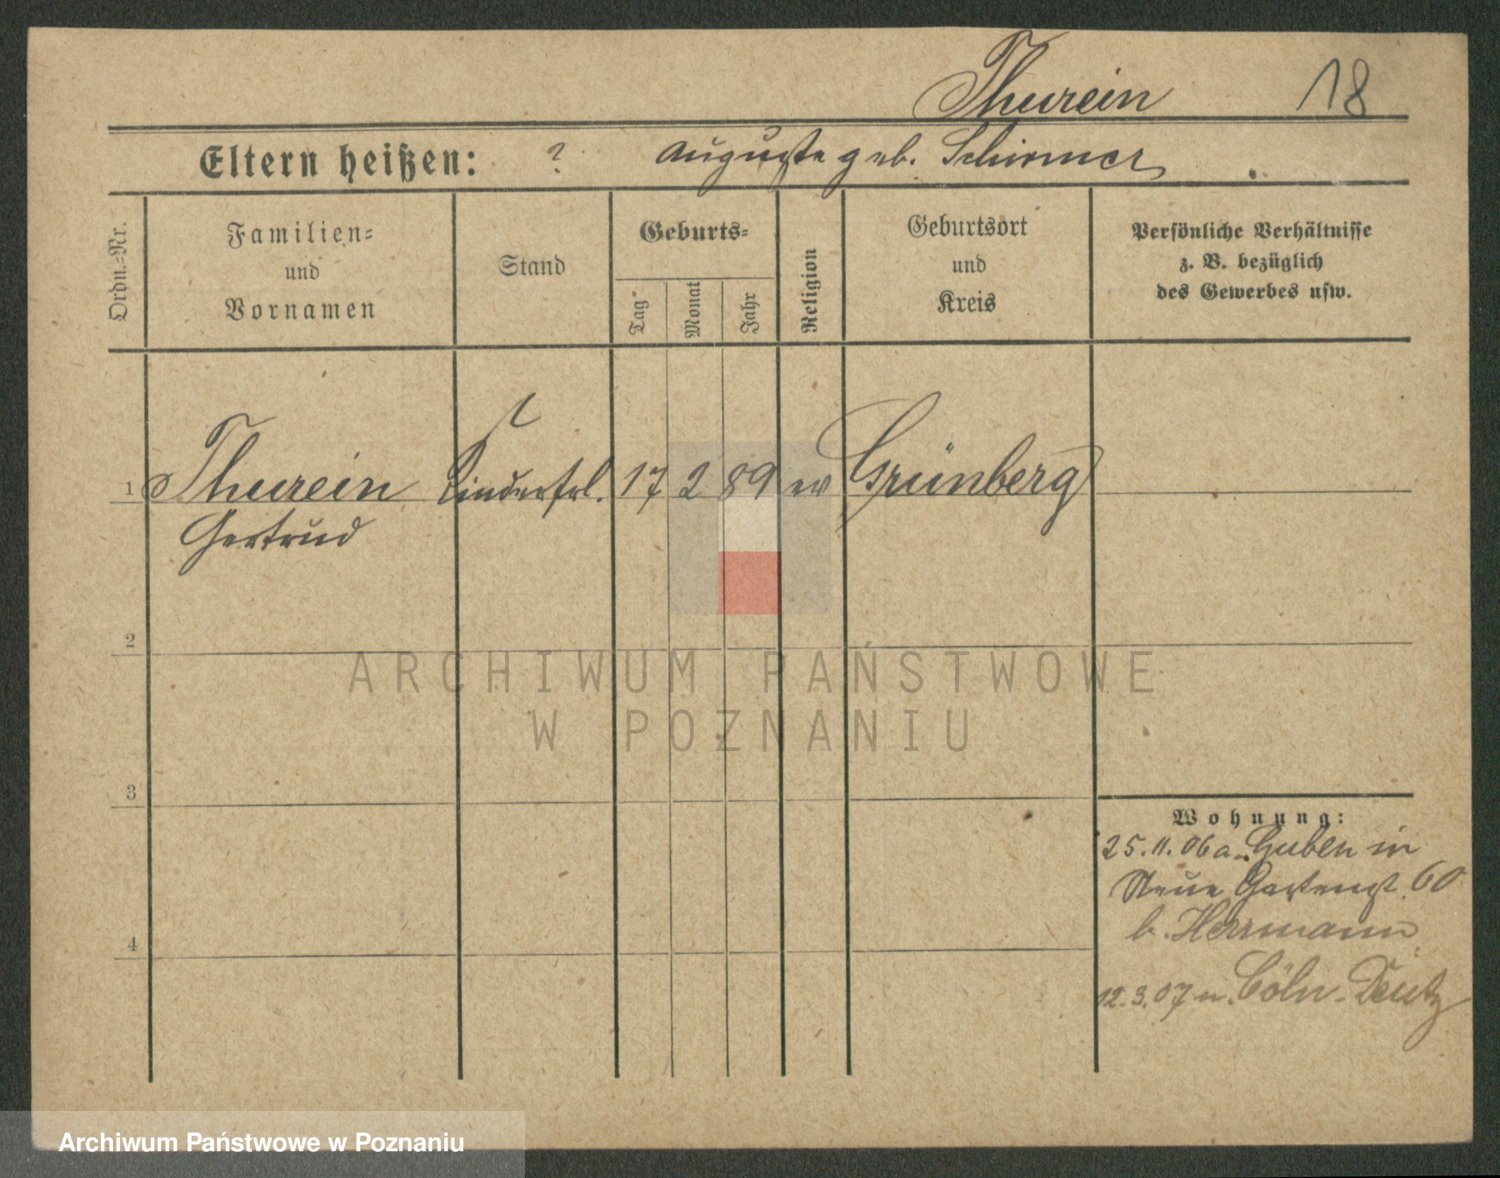 Thurein 18
Eltern heißen: ? Auguste geb. Schirmer
Ordn.-Nr.
Familien-
und
Vornamen
Stand
Geburts-
Tag
Monat
Jahr
Religion
Geburtsort
und
Kreis
Persönliche Verhältnisse
z. B. bezüglich
des Gewerbes usw.
1 Thurein Kinderfrl. 17 2 89 ev Grünberg
Gertrud
2
3
4
Wohnung:
25.11.06 a. Guben in
Neue Gartenst. 60
b. Herrmann
12.3.07 n. Cöln-Deutz
ARCHIWUM PAŃSTWOWE
W POZNANIU
Archiwum Państwowe w Poznaniu